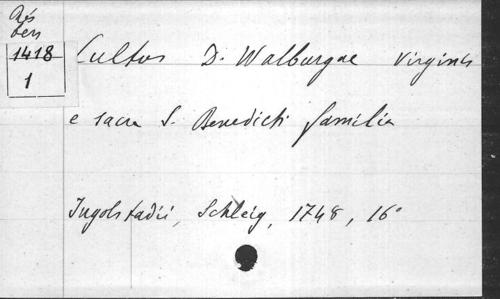 Aës
ben
1418
1
Cultus D. Walburgae Virginis
e sacra S. Benedicti familia
Ingolstadii, Schleig, 1748, 16°